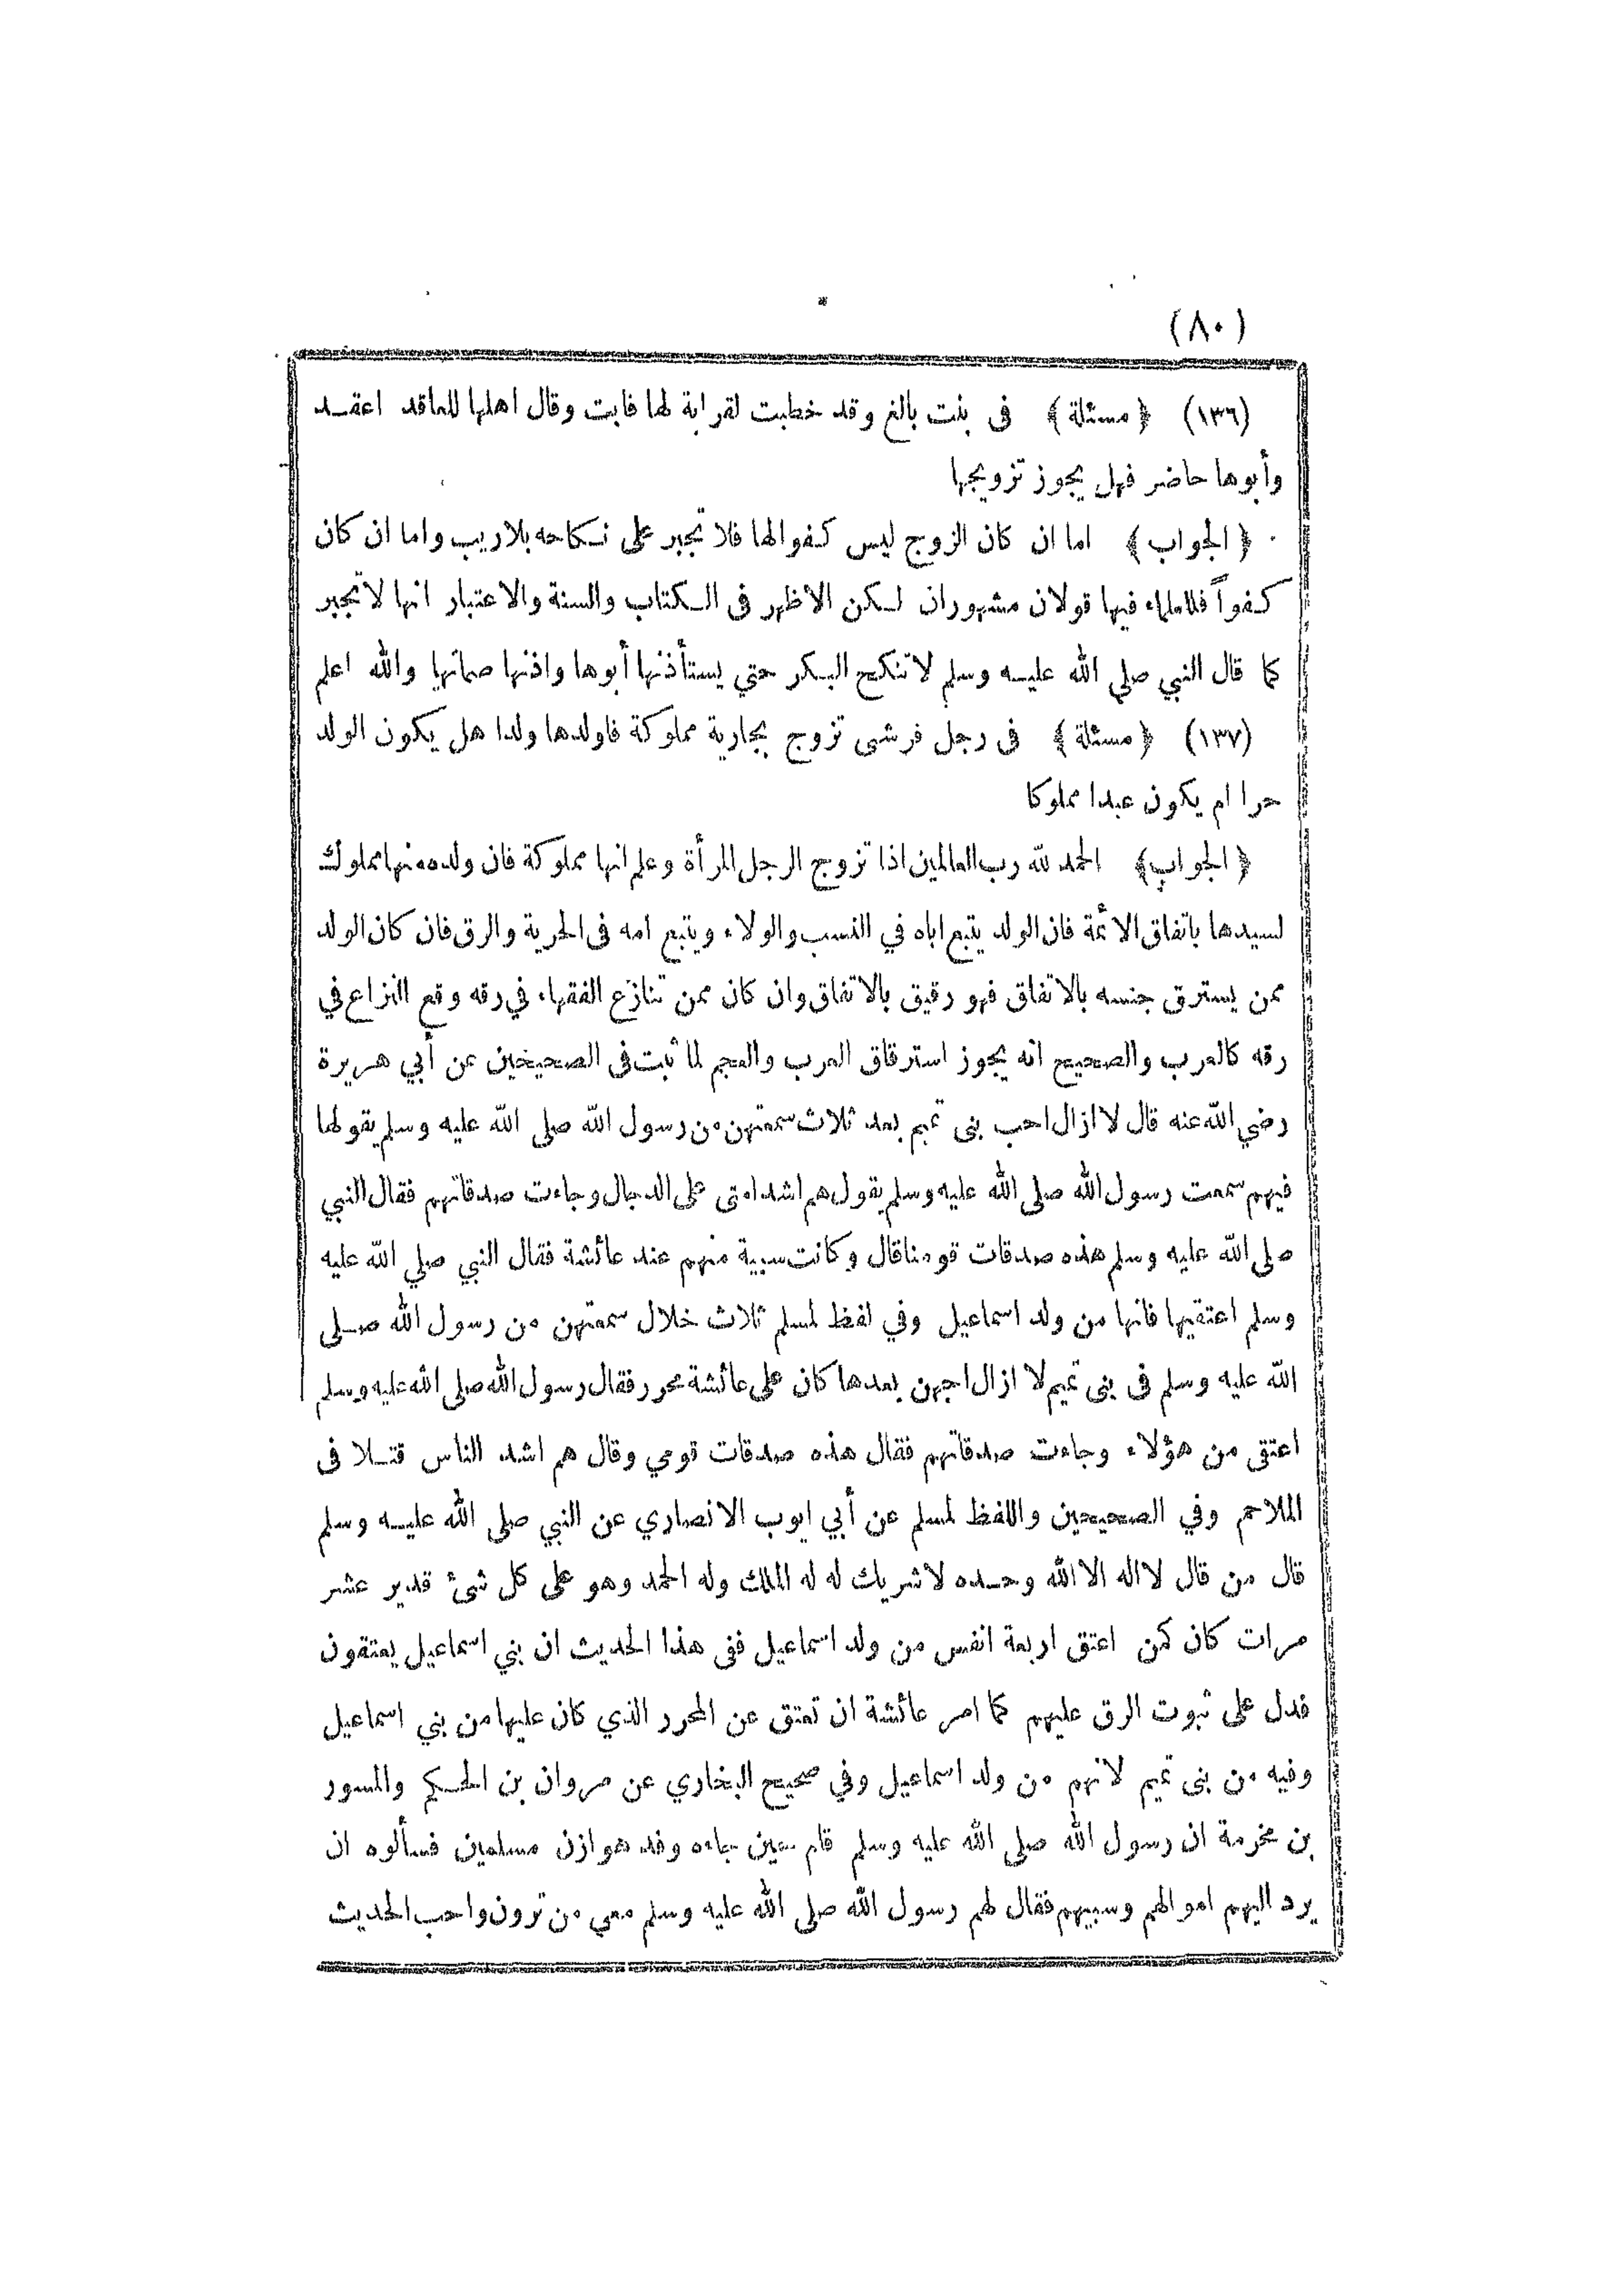 (٨٠)
(١٣٦) ﴿ مسئلة ﴾ فى بنت بالغ وقد خطبت لقرابة لها فابت وقال اهلها للعاقد اعقد
وأبوها حاضر فهل يجوز تزويجها
﴿ الجواب ﴾ اما ان كان الزوج ليس كفوا لها فلا تجبر على نكاحه بلاريب واما ان كان
كفواً فللعلماء فيها قولان مشهوران لكن الاظهر فى الكتاب والسنة والاعتبار انها لاتجبر
كما قال النبي صلى الله عليه وسلم لاتنكح البكر حتي يستأذنها أبوها واذنها صماتها والله اعلم
(١٣٧) ﴿ مسئلة ﴾ فى رجل قرشى تزوج بجارية مملوكة فاولدها ولدا هل يكون الولد
حرا ام يكون عبدا مملوكا
﴿ الجواب ﴾ الحمد لله رب العالمين اذا تزوج الرجل المرأة وعلم انها مملوكة فان ولده منها مملوك
لسيدها باتفاق الائمة فان الولد يتبع اباه في النسب والولاء ويتبع امه فى الحرية والرق فان كان الولد
ممن يسترق جنسه بالاتفاق فهو رقيق بالاتفاق وان كان ممن تنازع الفقهاء في رقه وقع النزاع في
رقه كالعرب والصحيح انه يجوز استرقاق العرب والعجم لما ثبت فى الصحيحين عن أبي هريرة
رضي الله عنه قال لا ازال احب بنى تميم بعد ثلاث سمعتهن من رسول الله صلى الله عليه وسلم يقولها
فيهم سمعت رسول الله صلى الله عليه وسلم يقول هم اشد امتى على الدجال وجاءت صدقاتهم فقال النبي
صلى الله عليه وسلم هذه صدقات قومنا قال وكانت سبية منهم عند عائشة فقال النبي صلي الله عليه
وسلم اعتقيها فانها من ولد اسماعيل وفي لفظ لمسلم ثلاث خلال سمعتهن من رسول الله صلى
الله عليه وسلم فى بنى تميم لا ازال احبهن بعدها كان على عائشة محرر فقال رسول الله صلى الله عليه وسلم
اعتقى من هؤلاء وجاءت صدقاتهم فقال هذه صدقات قومي وقال هم اشد الناس قتلا فى
الملاحم وفي الصحيحين واللفظ لمسلم عن أبي ايوب الانصاري عن النبي صلى الله عليه وسلم
قال من قال لااله الا الله وحده لاشريك له له الملك وله الحمد وهو على كل شئ قدير عشر
مرات كان كمن اعتق اربعة انفس من ولد اسماعيل ففى هذا الحديث ان بني اسماعيل يعتقون
فدل على ثبوت الرق عليهم كما امر عائشة ان تعتق عن المحرر الذي كان عليها من بني اسماعيل
وفيه من بنى تميم لانهم من ولد اسماعيل وفي صحيح البخاري عن مروان بن الحكم والمسور
بن مخرمة ان رسول الله صلى الله عليه وسلم قام حين جاءه وفد هوازن مسلمين فسألوه ان
يرد اليهم اموالهم وسبيهم فقال لهم رسول الله صلى الله عليه وسلم معي من ترون واحب الحديث